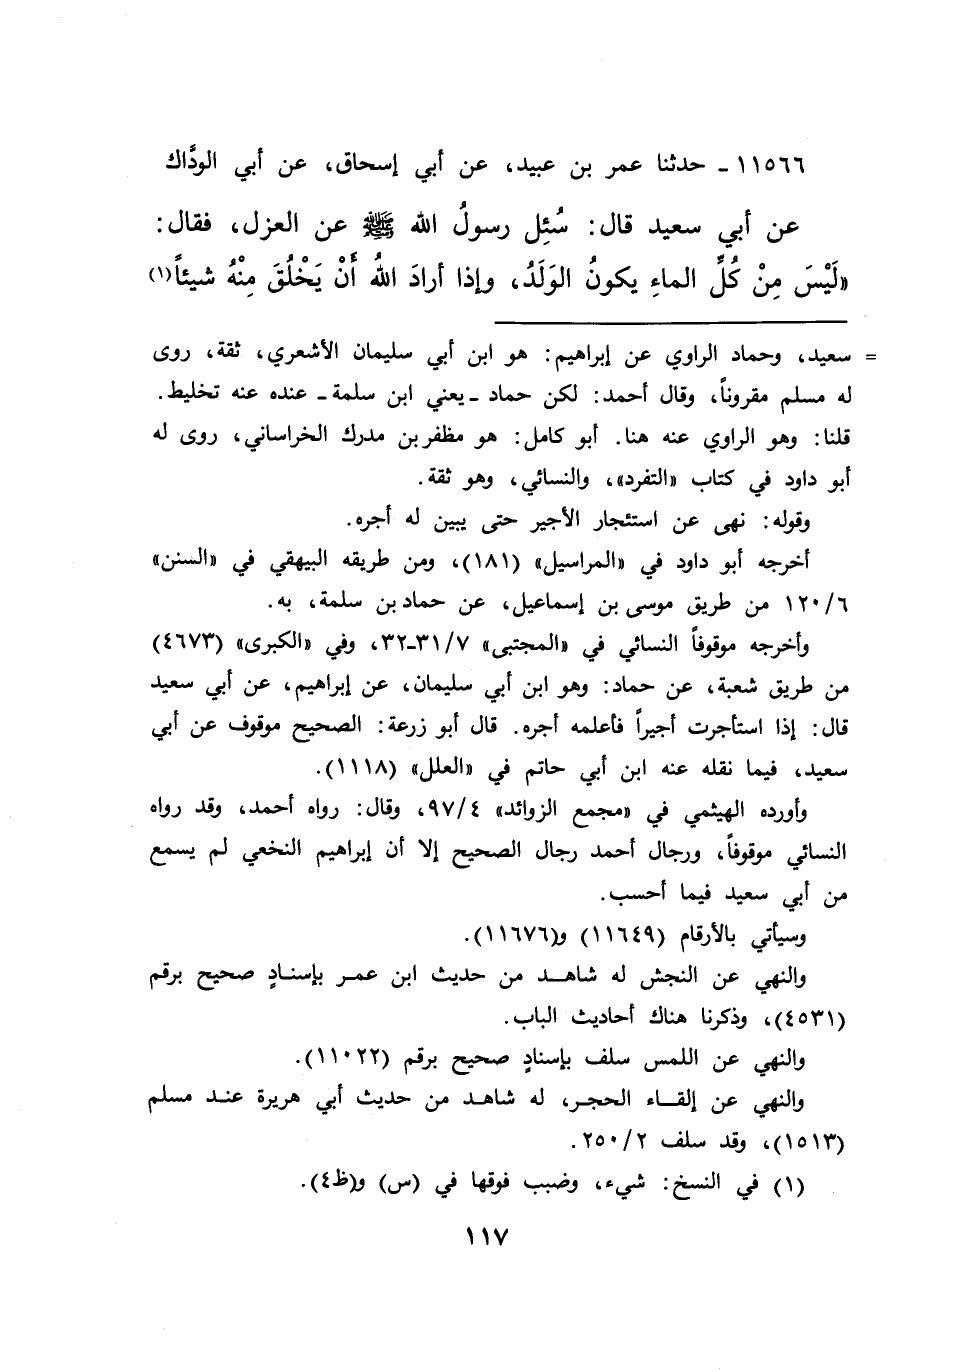 ١١٥٦٦ ـ حدثنا عمر بن عبيد، عن أبي إسحاق، عن أبي الودَّاك
عن أبي سعيد قال: سُئِل رسولُ الله ﷺ عن العزل، فقال:
«لَيْسَ مِنْ كُلِّ الماءِ يكونُ الوَلَدُ، وإذا أرادَ اللهُ أَنْ يَخْلُقَ مِنْهُ شيئاً(١)
= سعيد، وحماد الراوي عن إبراهيم: هو ابن أبي سليمان الأشعري، ثقة، روى
له مسلم مقروناً، وقال أحمد: لكن حماد ـ يعني ابن سلمة ـ عنده عنه تخليط.
قلنا: وهو الراوي عنه هنا. أبو كامل: هو مظفر بن مدرك الخراساني، روى له
أبو داود في كتاب «التفرد»، والنسائي، وهو ثقة.
وقوله: نهى عن استئجار الأجير حتى يبين له أجره.
أخرجه أبو داود في «المراسيل» (١٨١)، ومن طريقه البيهقي في «السنن»
٦/١٢٠ من طريق موسى بن إسماعيل، عن حماد بن سلمة، به.
وأخرجه موقوفاً النسائي في «المجتبى» ٧/٣١ـ٣٢، وفي «الكبرى» (٤٦٧٣)
من طريق شعبة، عن حماد: وهو ابن أبي سليمان، عن إبراهيم، عن أبي سعيد
قال: إذا استأجرت أجيراً فأعلمه أجره. قال أبو زرعة: الصحيح موقوف عن أبي
سعيد، فيما نقله عنه ابن أبي حاتم في «العلل» (١١١٨).
وأورده الهيثمي في «مجمع الزوائد» ٤/٩٧، وقال: رواه أحمد، وقد رواه
النسائي موقوفاً، ورجال أحمد رجال الصحيح إلا أن إبراهيم النخعي لم يسمع
من أبي سعيد فيما أحسب.
وسيأتي بالأرقام (١١٦٤٩) و(١١٦٧٦).
والنهي عن النجش له شاهد من حديث ابن عمر بإسنادٍ صحيح برقم
(٤٥٣١)، وذكرنا هناك أحاديث الباب.
والنهي عن اللمس سلف بإسنادٍ صحيح برقم (١١٠٢٢).
والنهي عن إلقاء الحجر، له شاهد من حديث أبي هريرة عند مسلم
(١٥١٣)، وقد سلف ٢/٢٥٠.
(١) في النسخ: شيء، وضبب فوقها في (س) و(ظ٤).
١١٧